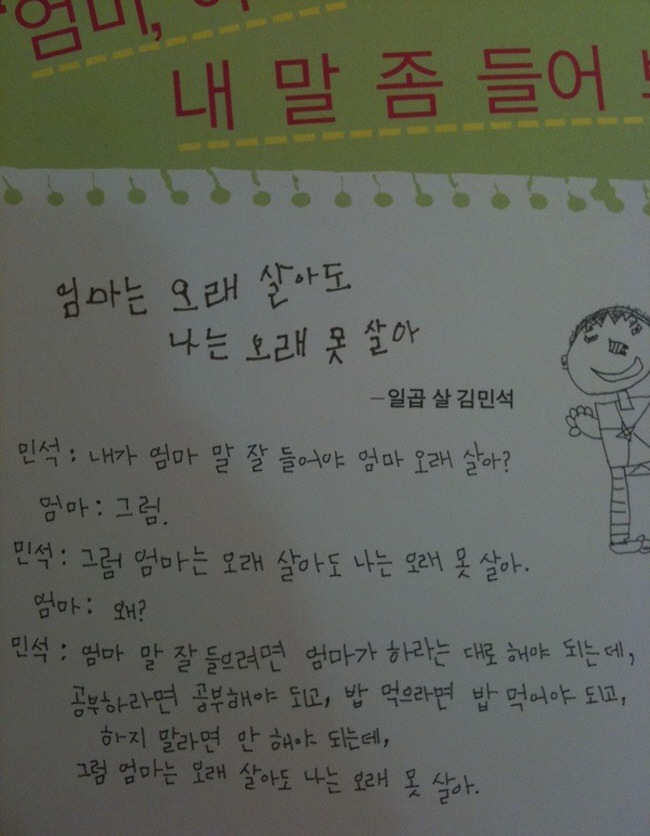 "엄마,
내 말 좀 들어
엄마는 오래 살아도
나는 오래 못 살아
-일곱 살 김민석
민석 : 내가 엄마 말 잘 들어야 엄마 오래 살아?
엄마 : 그럼.
민석 : 그럼 엄마는 오래 살아도 나는 오래 못 살아.
엄마 : 왜?
민석 : 엄마 말 잘 들으려면 엄마가 하라는 대로 해야 되는데,
공부하라면 공부해야 되고, 밥 먹으라면 밥 먹어야 되고,
하지 말라면 안 해야 되는데,
그럼 엄마는 오래 살아도 나는 오래 못 살아.